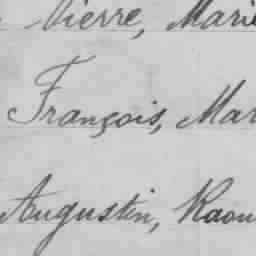 Pierre, Marie
François, Mar
Augustin, Raou